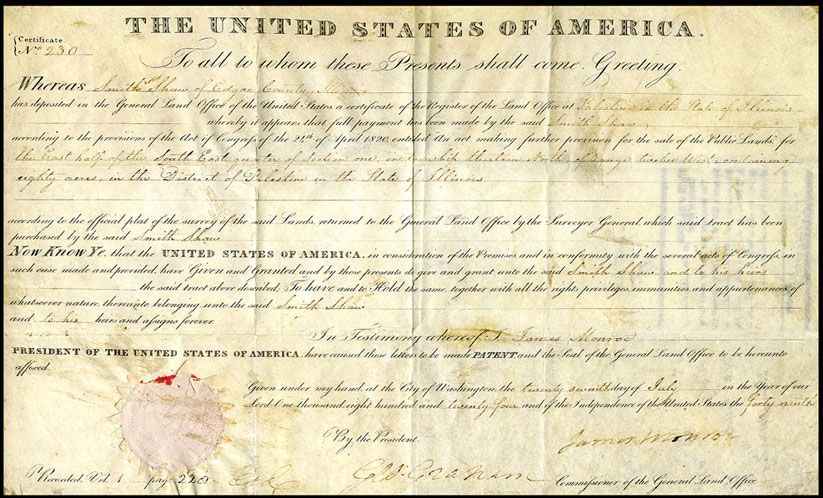 THE UNITED STATES OF AMERICA.
Certificate
No. 230
To all to whom these Presents shall come, Greeting.
Whereas Smith Shaw of Edgar County, Illinois
has deposited in the General Land Office of the United States, a certificate of the Register of the Land Office at Palestine in the State of Illinois
whereby it appears that full payment has been made by the said Smith Shaw
according to the provisions of the Act of Congress of the 24th of April 1820, entitled An act making further provision for the sale of the Public Lands, for
the East half of the South East quarter of Section one, in township thirteen North, of range twelve West, containing
eighty acres, in the District of Palestine in the State of Illinois
according to the official plat of the survey of the said Lands, returned to the General Land Office by the Surveyor General, which said tract has been
purchased by the said Smith Shaw
Now Know Ye, that the UNITED STATES OF AMERICA, in consideration of the Premises and in conformity with the several acts of Congress, in
such case made and provided, have Given and Granted and by these presents do give and grant unto the said Smith Shaw and to his heirs
the said tract above described; To have and to Hold the same, together with all the rights, privileges, immunities and appurtenances of
whatsoever nature, thereunto belonging, unto the said Smith Shaw
and to his heirs and assigns forever.
In Testimony whereof, I, James Monroe
PRESIDENT OF THE UNITED STATES OF AMERICA, have caused these letters to be made PATENT, and the Seal of the General Land Office to be hereunto
affixed.
Given under my hand, at the City of Washington, the twenty seventh day of July in the Year of our
Lord One thousand, eight hundred and twenty four and of the Independence of the United States the forty ninth
By the President.
James Monroe
Recorded, Vol. 1 page 220
Geo. Graham
Commissioner of the General Land Office